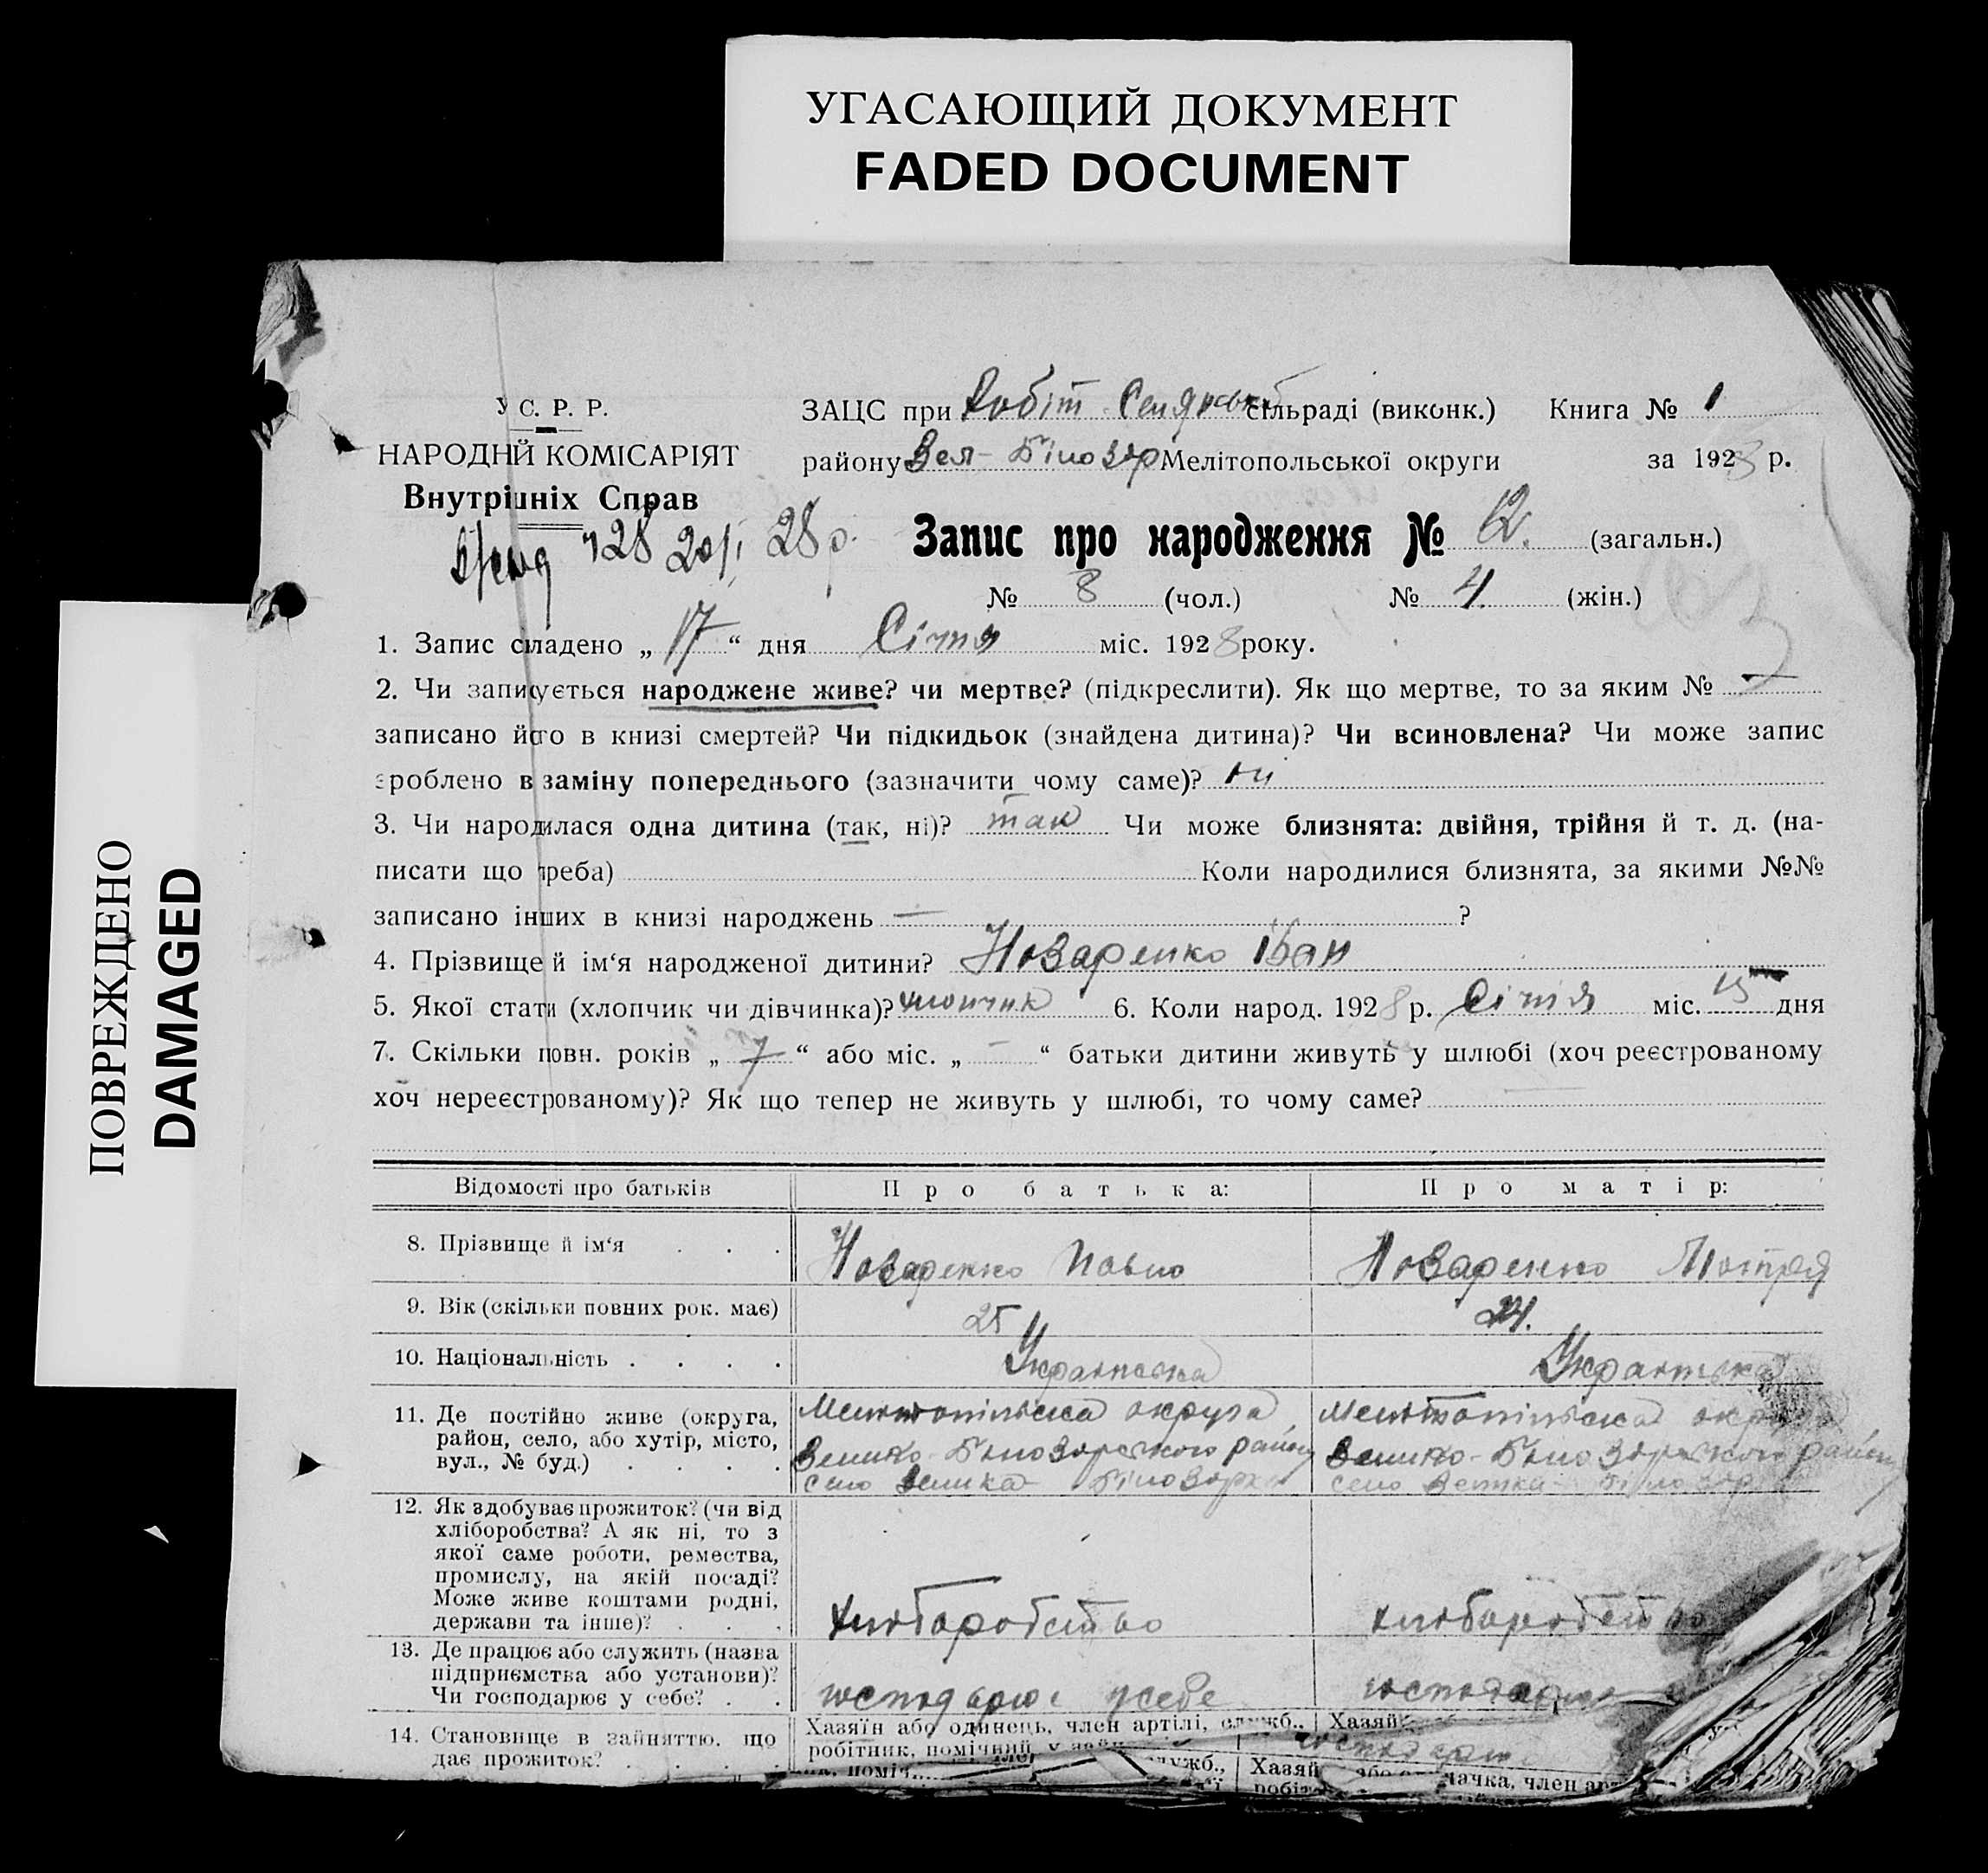 УГАСАЮЩИЙ ДОКУМЕНТ
FADED DOCUMENT
ПОВРЕЖДЕНО
DAMAGED
У С. Р. Р.
НАРОДНІЙ КОМІСАРІЯТ
Внутрішніх Справ
28 20/I 28 р.
ЗАЦС при Робіт Селянськ сільраді (виконк.) Книга № 1
району Вел-Білозер Мелітопольської округи за 1928 р.
Запис про народження № 12. (загальн.)
№ 8 (чол.) № 4. (жін.)
1. Запис складено „ 17 “ дня Січня міс. 1928 року.
2. Чи записується народжене живе? чи мертве? (підкреслити). Як що мертве, то за яким № —
записано його в книзі смертей? Чи підкидьок (знайдена дитина)? Чи всиновлена? Чи може запис
зроблено в заміну попереднього (зазначити чому саме)? ні
3. Чи народилася одна дитина (так, ні)? так Чи може близнята: двійня, трійня й т. д. (на-
писати що треба) Коли народилися близнята, за якими №№
записано інших в книзі народжень — ?
4. Прізвище й ім‘я народженої дитини? Назаренко Іван
5. Якої стати (хлопчик чи дівчинка)? хлопчик 6. Коли народ. 1928 р. Січня міс. 15 дня
7. Скільки повн. років „ 7 “ або міс. „ – “ батьки дитини живуть у шлюбі (хоч реєстрованому
хоч нереєстрованому)? Як що тепер не живуть у шлюбі, то чому саме?
Відомості про батьків Про батька: Про матір:
8. Прізвище й ім‘я . . . Назаренко Павло Назаренко Мотря
9. Вік (скільки повних рок. має) 25 24.
10. Національність . . . . Українська Українська
11. Де постійно живе (округа,
район, село, або хутір, місто,
вул., № буд.) . . . .
Мелитопільска округа
Велико-Білозерського район
село Велика Білозерка
Мелитопільска округа
Велико-Білозерського район
село Велика Білозер
12. Як здобуває прожиток? (чи від
хліборобства? А як ні, то з
якої саме роботи, ремества,
промислу, на якій посаді?
Може живе коштами родні,
держави та інше)? . . .
хліборобство
хліборобство
13. Де працює або служить (назва
підприємства або установи)?
Чи господарює у себе? . .
господарює у себе
господарює
14. Становище в зайняттю, що
дає прожиток? . . . .
Хазяїн або одинець, член артілі, служб.,
робітник, помічний
Хазяй
служб.,
Хазяй
лачка, член арт